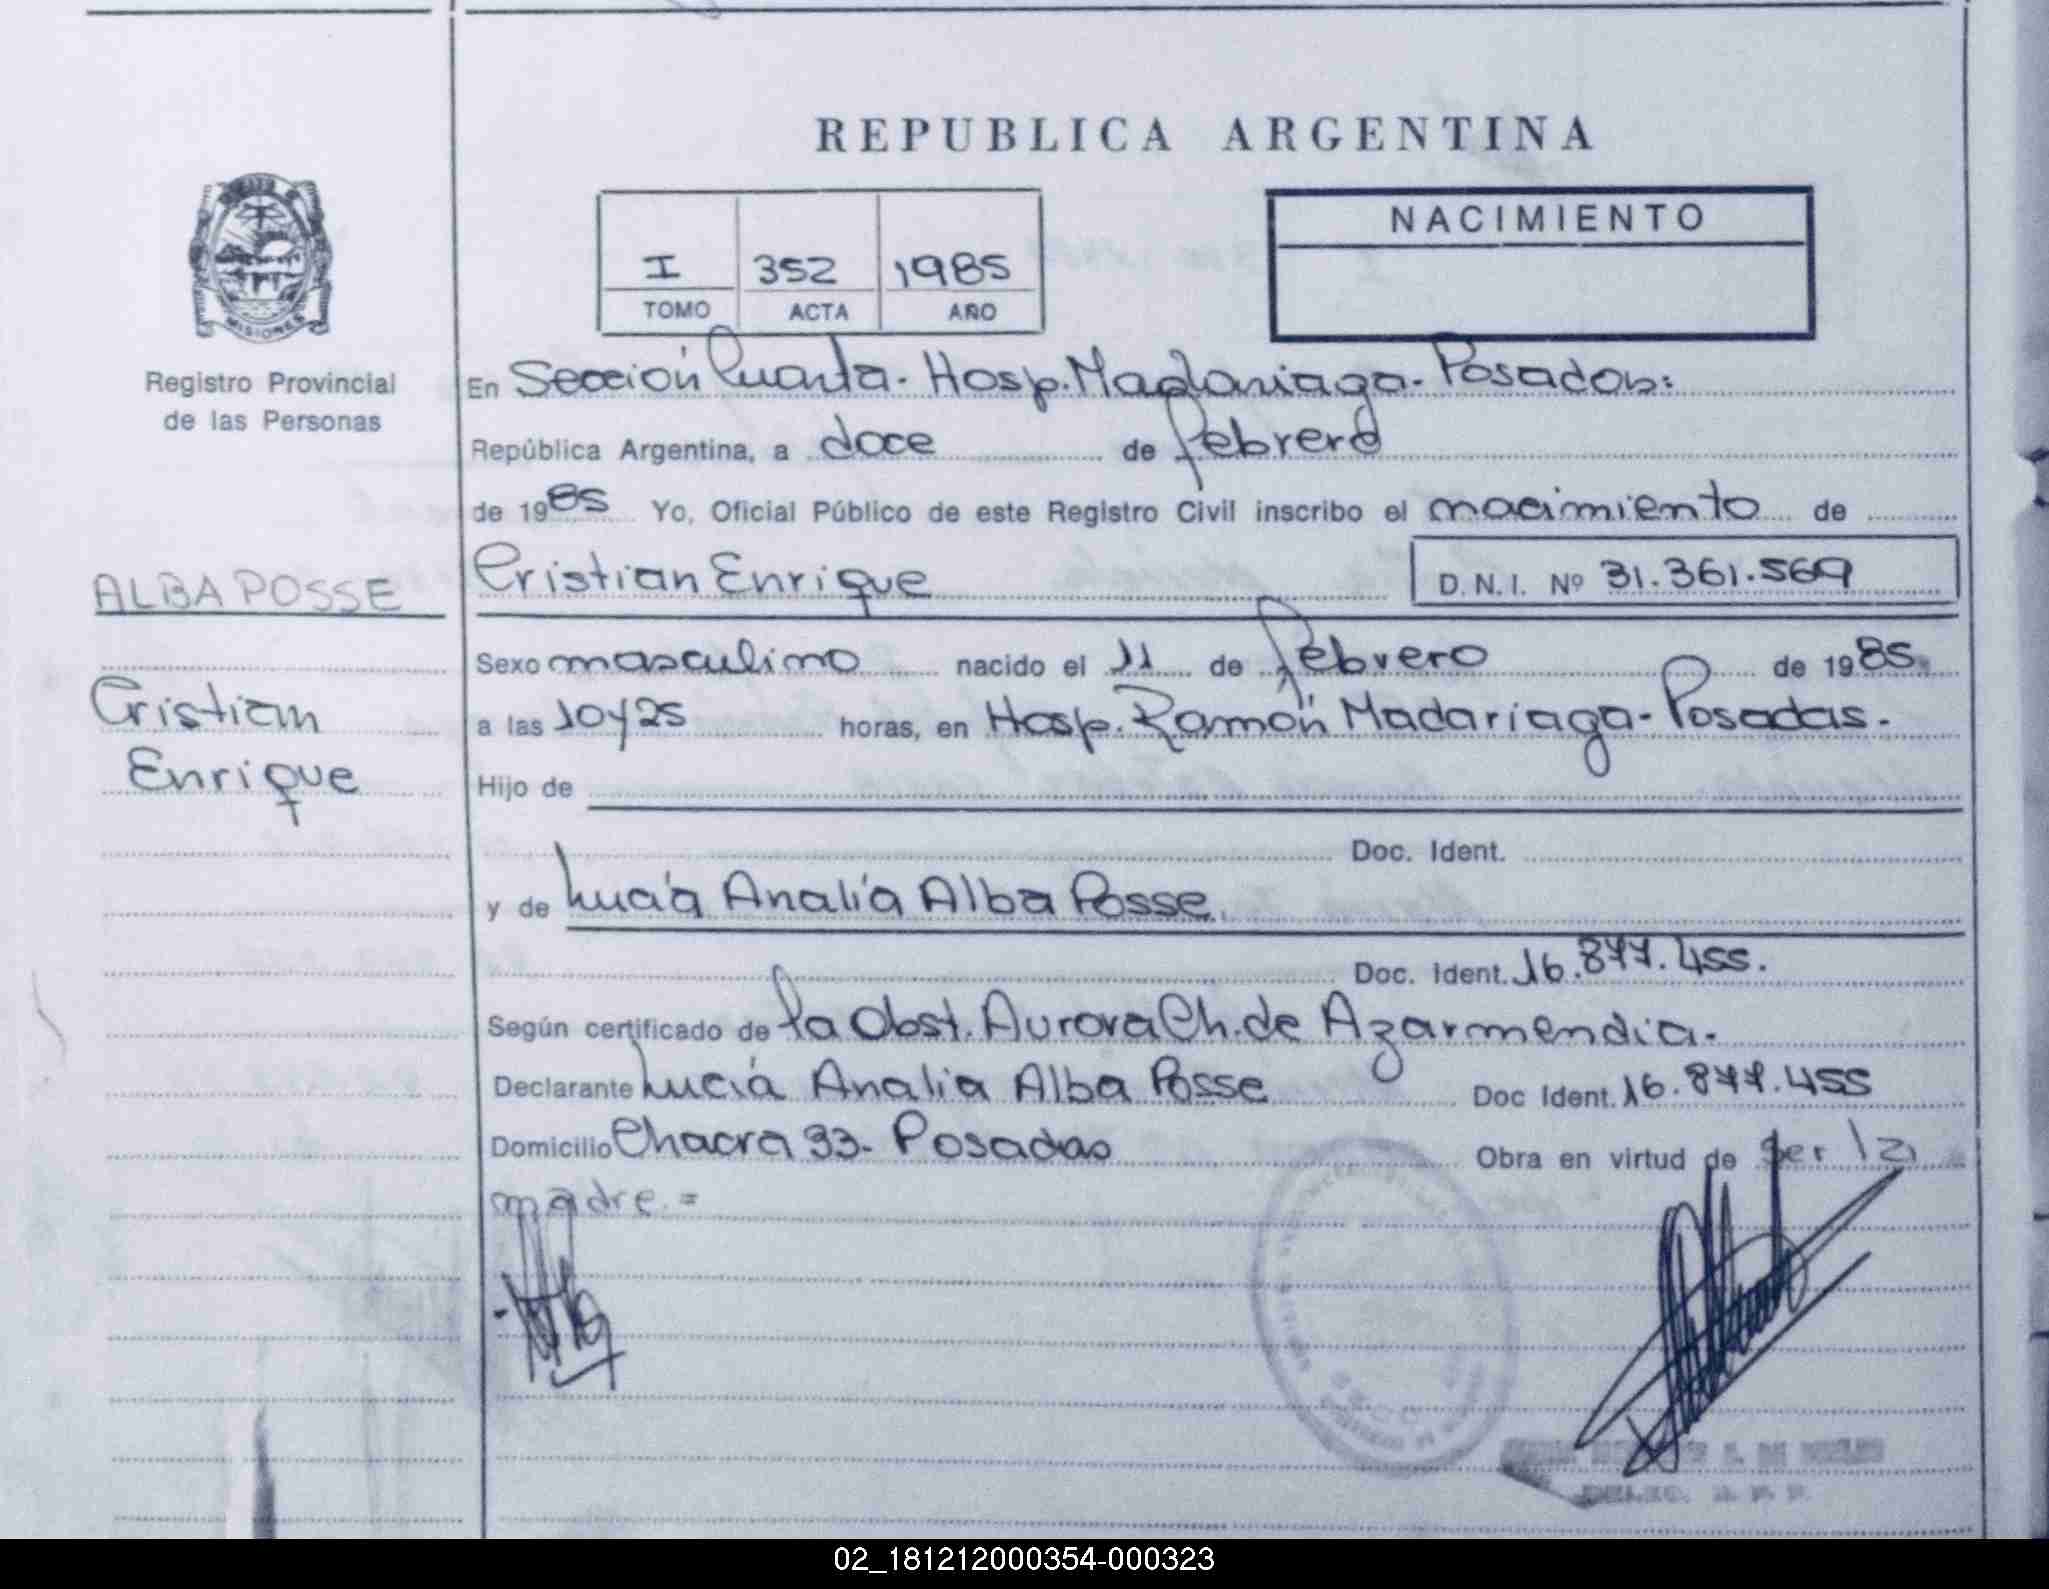 REPUBLICA ARGENTINA
NACIMIENTO
I 352 1985
TOMO ACTA AÑO
MISIONES
Registro Provincial
de las Personas
En Sección Cuarta - Hosp. Madariaga - Posadas:
República Argentina, a doce de febrero
de 1985 Yo, Oficial Público de este Registro Civil inscribo el nacimiento de
Cristian Enrique D.N.I. Nº 31.361.569
ALBA POSSE
Cristian
Enrique
Sexo masculino nacido el 11 de febrero de 1985.
a las 10y25 horas, en Hosp. Ramón Madariaga - Posadas.
Hijo de
Doc. Ident.
y de Lucía Analía Alba Posse.
Doc. Ident. 16.877.455.
Según certificado de la Obst. Aurora Ch. de Azarmendia.
Declarante Lucía Analía Alba Posse Doc Ident. 16.877.455
Domicilio Chacra 33 - Posadas Obra en virtud de ser la
madre. =
02_181212000354-000323